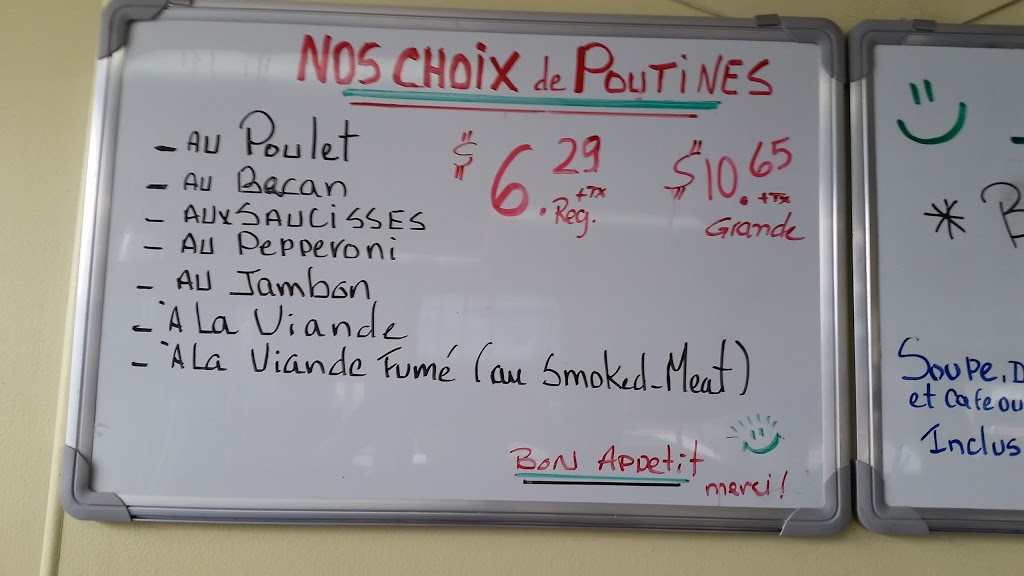 NOS CHOIX de POUTINES
- AU Poulet
- AU Bacan
- AUX SAUCISSES
- AU Pepperoni
- AU Jambon
- À La Viande
- À La Viande Fumé (au Smoked-Meat)
$6.29 +TX
Reg.
$10.65 +TX
Grande
BON APPetit
merci!
* B
Soupe, D
et Cafe ou
Inclus